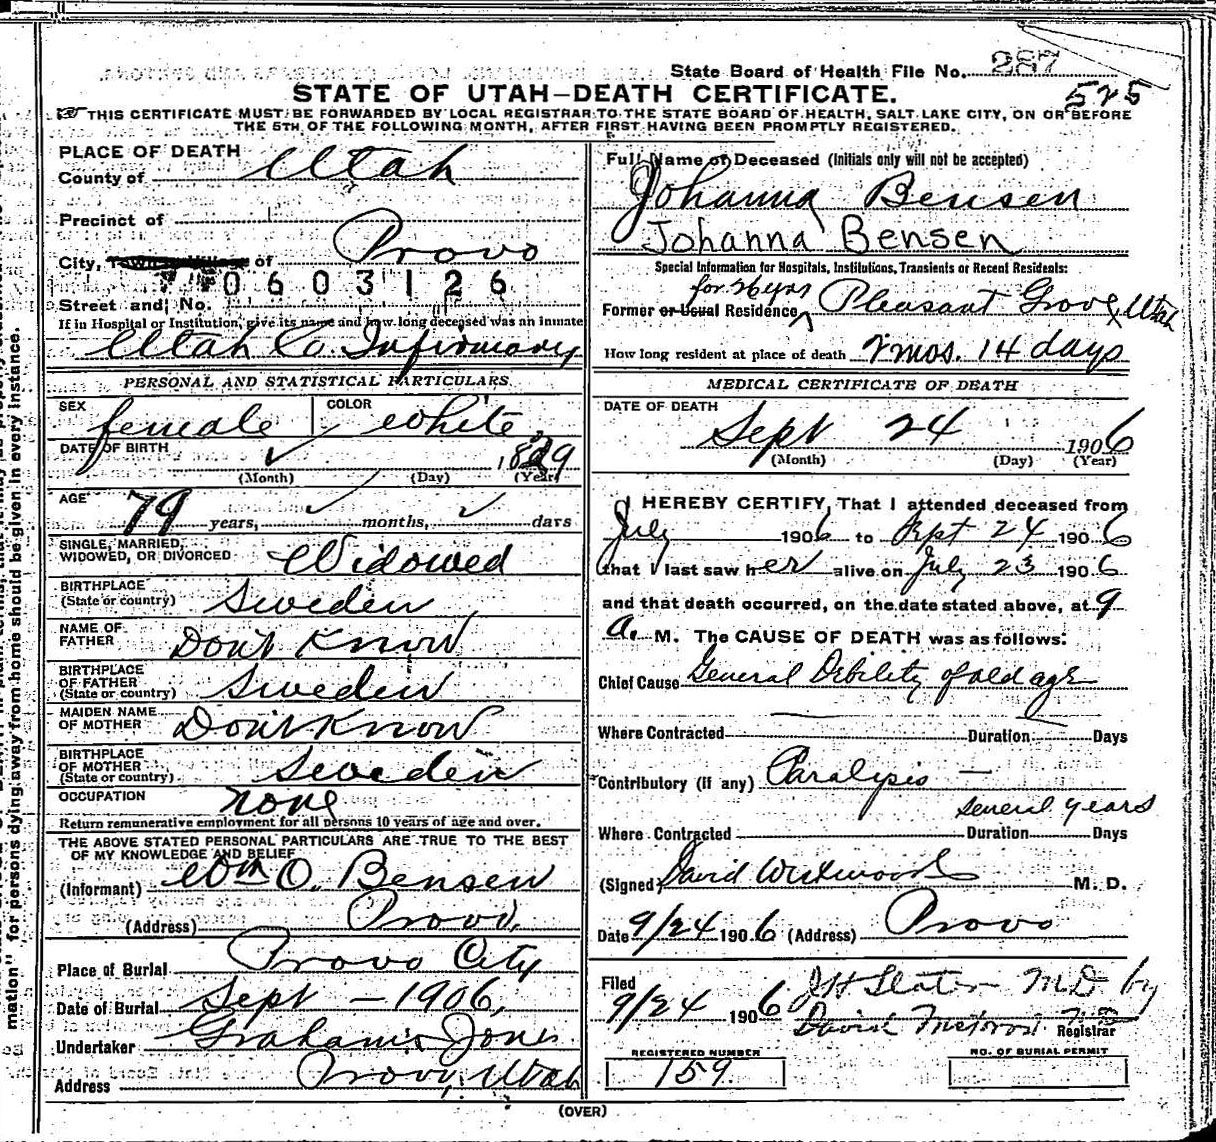 State Board of Health File No. 287
525
STATE OF UTAH—DEATH CERTIFICATE.
THIS CERTIFICATE MUST BE FORWARDED BY LOCAL REGISTRAR TO THE STATE BOARD OF HEALTH, SALT LAKE CITY, ON OR BEFORE
THE 5TH OF THE FOLLOWING MONTH, AFTER FIRST HAVING BEEN PROMPTLY REGISTERED.
PLACE OF DEATH
County of Utah
Precinct of
City, of Provo
0603126
Street and No.
If in Hospital or Institution, give its name and how long deceased was an inmate
Utah Co. Infirmary
PERSONAL AND STATISTICAL PARTICULARS
SEX female COLOR white
DATE OF BIRTH 1829
(Month) (Day) (Year)
AGE 79 years, months, days
SINGLE, MARRIED,
WIDOWED, OR DIVORCED Widowed
BIRTHPLACE
(State or country) Sweden
NAME OF
FATHER Don't Know
BIRTHPLACE
OF FATHER
(State or country) Sweden
MAIDEN NAME
OF MOTHER Don't Know
BIRTHPLACE
OF MOTHER
(State or country) Sweden
OCCUPATION none
Return remunerative employment for all persons 10 years of age and over.
THE ABOVE STATED PERSONAL PARTICULARS ARE TRUE TO THE BEST
OF MY KNOWLEDGE AND BELIEF
(Informant) Wm O. Bensen
(Address) Provo,
Place of Burial Provo City
Date of Burial Sept – 1906,
Undertaker Graham & Jones
Address Provo, Utah
Full Name of Deceased (Initials only will not be accepted)
Johanna Bensen
Johanna Bensen
Special Information for Hospitals, Institutions, Transients or Recent Residents:
for 26 yrs
Former or Usual Residence Pleasant Grove, Utah
How long resident at place of death 2 mos. 14 days
MEDICAL CERTIFICATE OF DEATH
DATE OF DEATH
Sept 24 1906
(Month) (Day) (Year)
I HEREBY CERTIFY, That I attended deceased from
July 1906 to Sept 24 1906
that I last saw her alive on July 23 1906
and that death occurred, on the date stated above, at 9
a. M. The CAUSE OF DEATH was as follows:
Chief Cause General Debility of old age
Where Contracted Duration Days
Contributory (if any) Paralysis —
several years
Where Contracted Duration Days
(Signed) David Westwood M. D.
Date 9/24 1906 (Address) Provo
Filed
9/24 1906 M.D. by
David Registrar
REGISTERED NUMBER
159
NO. OF BURIAL PERMIT
(OVER)
mation" for persons dying away from home should be given in every instance.